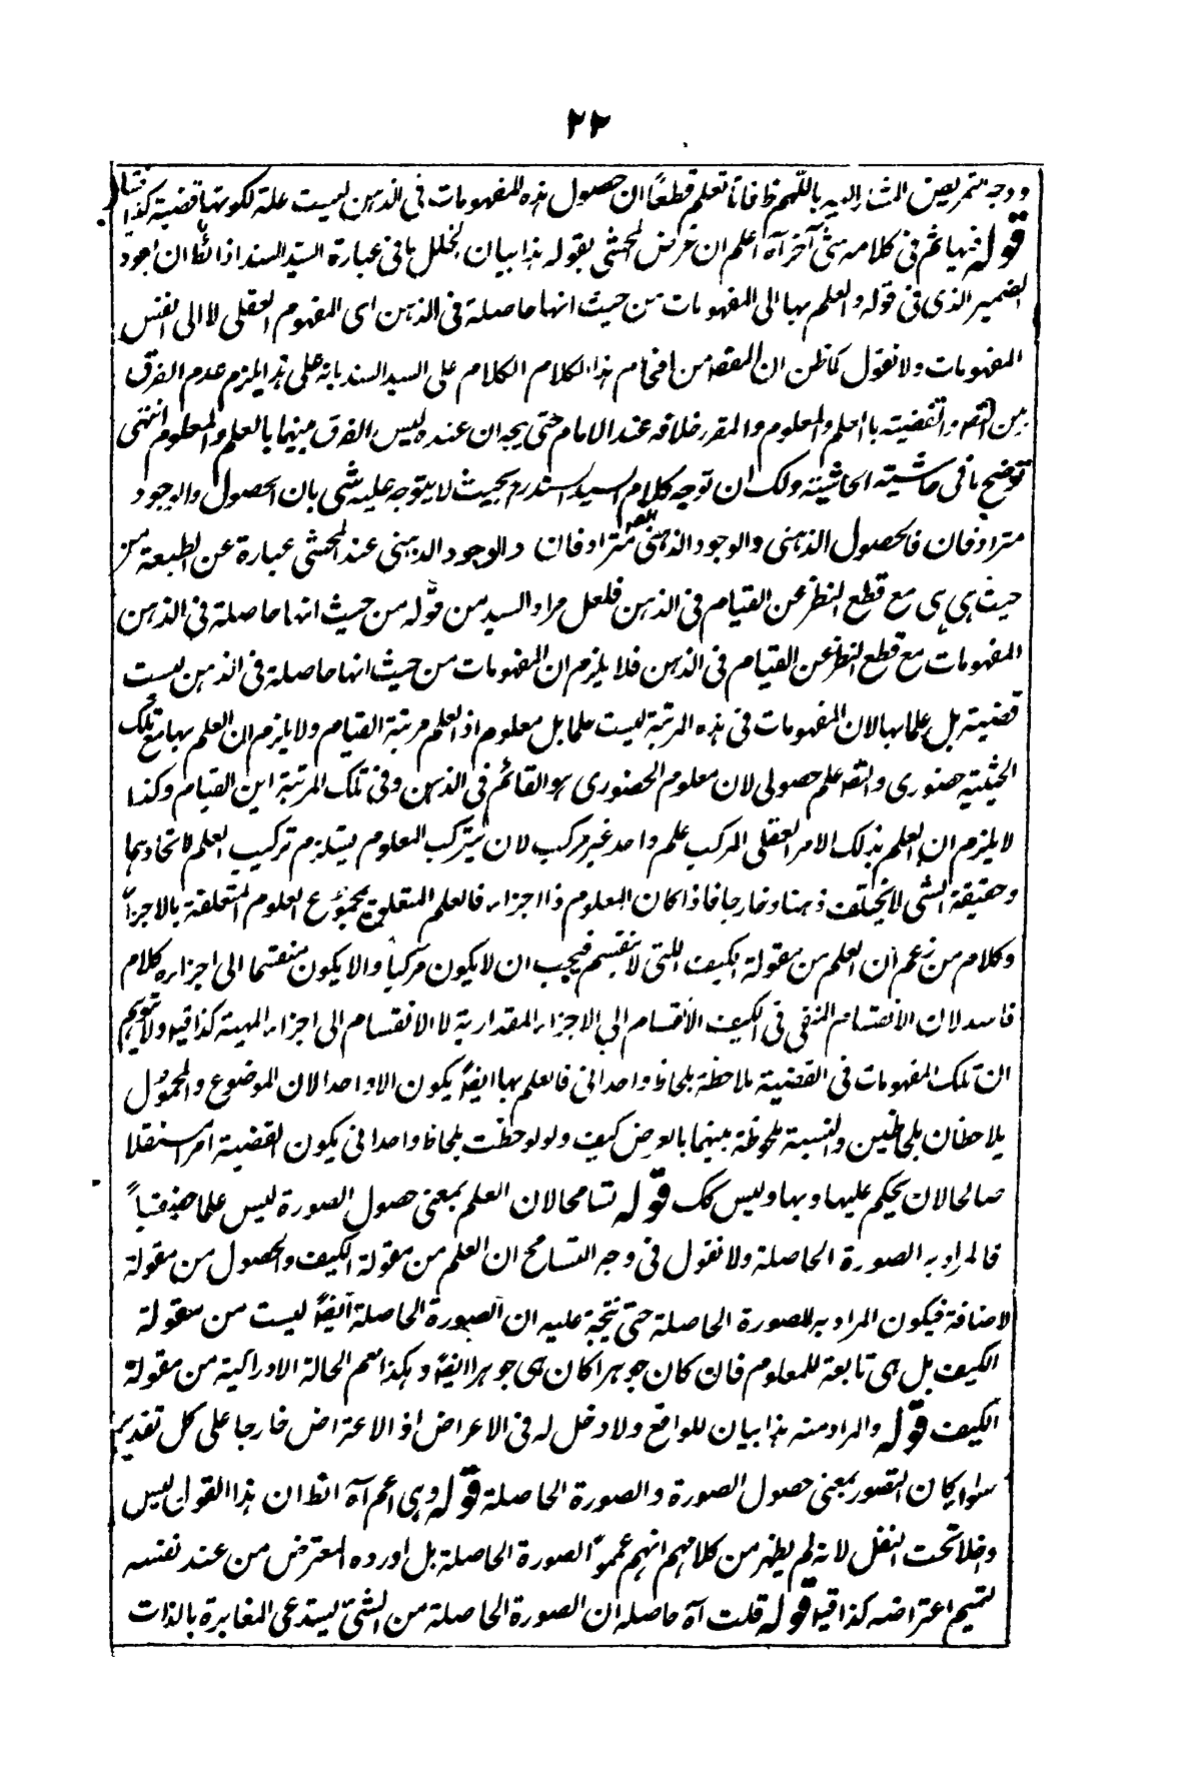 ٢٢
ووجه تمريض المشار اليه باللّهم ظ فانا نعلم قطعاً ان حصول هذه المفهومات فى الذهن ليست علة لكونها قضية كذا
قوله فيها ثم فى كلامه شئ آخر آه اعلم ان غرض المحشى بقوله هذا بيان الخلل ما فى عبارة السيد السند اذ الظ ان يعود
الضمير الذى فى قوله والعلم بها الى المفهومات من حيث انها حاصلة فى الذهن اى المفهوم العقلى لا الى النفس
المفهومات ولا نقول كما ظن ان المقصه من اقحام هذا الكلام الكلام على السيد السند بانه على هذا يلزم عدم الفرق
بين التصه والقضية باالعلم والمعلوم والمقرر خلافه عند الامام حتى يجه ان عنده ليس الفرق بينهما بالعلم والمعلوم انتهى
توضيح ما فى حاشية الحاشية ولك ان توجه كلام السيد السند رح بحيث لا يتوجه عليه شئ بان الحصول والوجود
مترادفان فالحصول الذهنى والوجود الذهنى مترادفان والوجود الذهنى عند المحشى عبارة عن الطبيعة من
حيث هى هى مع قطع النظر عن القيام فى الذهن فلعل مراد السيد من قوله من حيث انها حاصلة فى الذهن
المفهومات مع قطع النظر عن القيام فى الذهن فلا يلزم ان المفهومات من حيث انها حاصلة فى الذهن ليست
قضية بل علما بها لان المفهومات فى هذه المرتبة ليست علما بل معلوم اذ العلم مرتبة القيام ولا يلزم ان العلم بها مع تلك
الحيثية حضورى والتصه علم حصولى لان معلوم الحضورى هو القائم فى الذهن وفى تلك المرتبة اين القيام وكذا
لا يلزم ان العلم بذلك الامر العقلى المركب علم واحد غير مركب لان تركب المعلوم يستلزم تركيب العلم لاتحادهما
وحقيقة الشئ لا يختلف ذهنا وخارجا فاذا كان المعلوم ذا اجزاء فالعلم المتعلق مجموع العلوم المتعلقة بالاجزاء
وكلام من زعم ان العلم من مقولة الكيف اللتى لا تنقسم فيجب ان لا يكون مركبا والا يكون منقسما الى اجزاءه كلام
فاسد لان الانقسام المنفى فى الكيف الانقسام الى الاجزاء المقدارية لا الانقسام الى اجزاء المهية كذا قيل ولا تتوهم
ان تلك المفهومات فى القضية ملاحظة بلحاظ واحدانى فالعلم بها ايضاً يكون الا واحدا لان الموضوع والمحمول
يلاحظان بلحاظين والنسبة ملحوظة بينهما بالعرض كيف ولو لوحظت بلحاظ واحدانى يكون القضية امرا مستقلا
صالحا لان يحكم عليها وبها وليس كك قوله تسامحا لان العلم بمعنى حصول الصورة ليس علما حقيقيا
فالمراد به الصورة الحاصلة ولا نقول فى وجه التسامح ان العلم من مقولة الكيف والحصول من مقولة
الاضافة فيكون المراد به الصورة الحاصلة حتى يتجه عليه ان الصورة الحاصلة ايضاً ليست من مقولة
الكيف بل هى تابعة للمعلوم فان كان جوهرا كان هى جوهرا ايضاً وهكذا نعم الحالة الادراكية من مقولة
الكيف قوله والمراد منه هذا بيان للواقع ولا دخل له فى الاعراض اذ الاعتراض خارجا على كل تقدير
سواء كان التصور بمعنى حصول الصورة والصورة الحاصلة قوله وهى اعم آه الظ ان هذا القول ليس
دخلا تحت النقل لانه لم يظهر من كلامهم انهم عمموا الصورة الحاصلة بل اورده المعترض من عند نفسه
لتتميم اعتراضه كذا قيل قوله قلت آه حاصله ان الصورة الحاصلة من الشئ يستدعى المغايرة بالذات